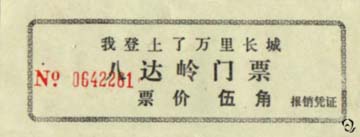 我登上了万里长城
八达岭门票
Nº 0642281
票价 伍角 报销凭证